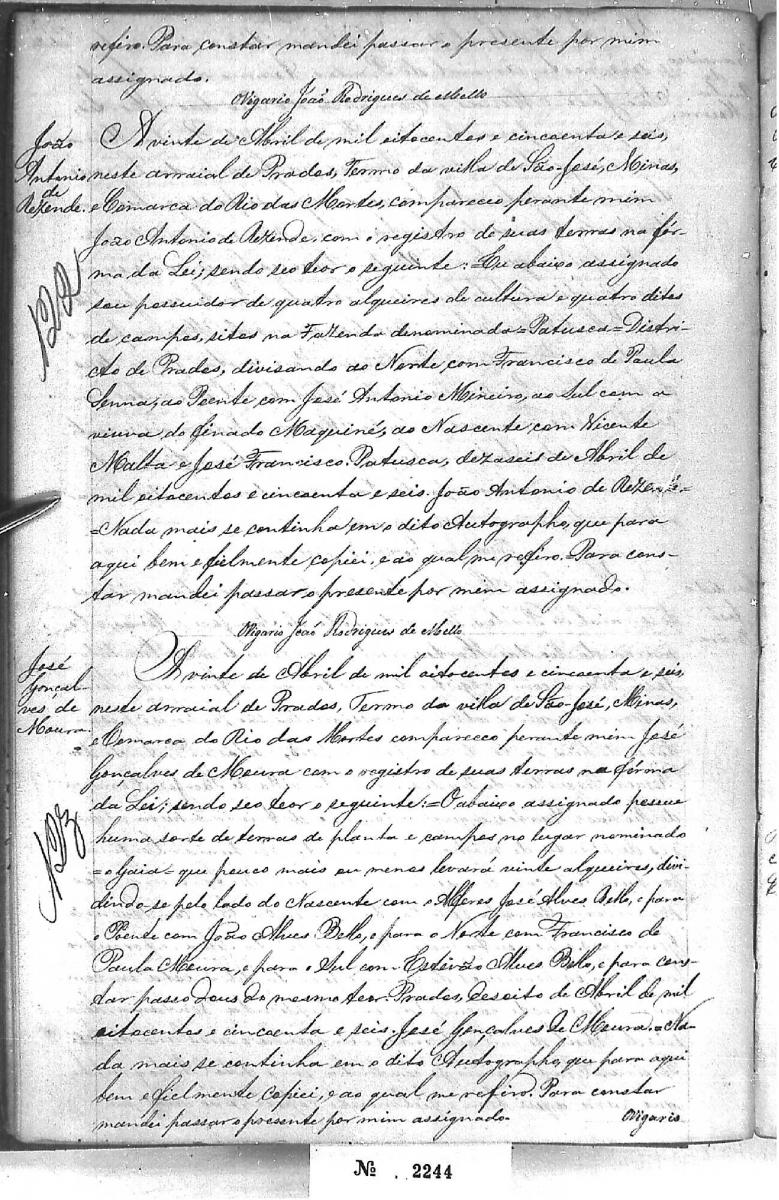 refiro. Para constar mandei passar o presente por mim
assignado.
O Vigario João Rodrigues de Mello
João
Antonio
de
Rezende.
122
A vinte de Abril de mil oitocentos e cincoenta e seis,
neste arraial de Prados, Termo da villa de São José, Minas,
e Comarca do Rio das Mortes, compareceo perante mim
João Antonio de Rezende, com o registro de suas terras na fór-
ma da Lei; sendo seo teor o seguinte := Eu abaixo assignado
sou possuidor de quatro alqueires de cultura e quatro ditos
de campos, sitos na Fazenda denominada = Patusca = Distri-
cto de Prados, divisando ao Norte, com Francisco de Paula
Senna, ao Poente com José Antonio Mineiro, ao Sul com a
viuva do finado Maquiné, ao Nascente, com Vicente
Malta e José Francisco. Patusca, dezaseis de Abril de
mil oitocentos e cincoenta e seis. João Antonio de Rezende=
=Nada mais se continha em o dito Autographo, que para
aqui bem e fielmente copiei, e ao qual me refiro. Para cons-
tar mandei passar o presente por mim assignado.
O Vigario João Rodrigues de Mello
José
Gonçal-
ves de
Moura.
123
A vinte de Abril de mil oitocentos e cincoenta e seis,
neste arraial de Prados, Termo da villa de São José, Minas,
e Comarca do Rio das Mortes compareceo perante mim José
Gonçalves de Moura com o registro de suas terras na fórma
da Lei; sendo seo teor o seguinte := O abaixo assignado possue
huma sorte de terras de planta e campos no lugar nominado
=o Gaia= que pouco mais ou menos levará vinte alqueires, divi-
dindo-se pelo lado do Nascente com o Alferes José Alves Bello, e para
o Poente com João Alves Bello, e para o Norte com Francisco de
Paula Moura, e para o Sul com Estevão Alves Bello, e para cons-
tar passo dous do mesmo teor. Prados, desoito de Abril de mil
oitocentos e cincoenta e seis. José Gonçalves de Moura.=Na-
da mais se continha em o dito Autographo, que para aqui
bem e fielmente copiei, e ao qual me refiro. Para constar
mandei passar o presente por mim assignado.
O Vigario
Nº 2244